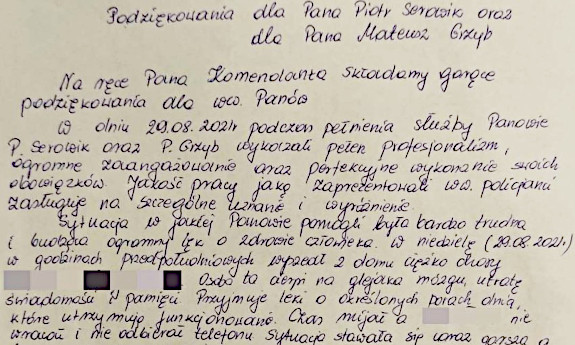 Podziękowania dla Pana Piotr Serowik oraz
dla Pana Mateusz Grzyb
Na ręce Pana Komendanta składamy gorące
podziękowania dla ww. Panów
W dniu 29.08.2021r podczas pełnienia służby Panowie
P. Serowik oraz P. Grzyb wykazali pełen profesjonalizm,
ogromne zaangażowanie oraz perfekcyjne wykonanie swoich
obowiązków. Jakość pracy jaką zaprezentowali ww. policjanci
zasługuje na szczególne uznanie i wyróżnienie.
Sytuacja w jakiej Panowie pomagali była bardzo trudna
i budząca ogromny lęk o zdrowie człowieka. W niedzielę (29.08.2021r)
w godzinach przedpołudniowych wyszedł z domu ciężko chory
Osoba ta cierpi na glejaka mózgu, utratę
świadomości i pamięci. Przyjmuje leki o określonych porach dnia,
które utrzymują funkcjonowanie. Czas mijał a nie
wracał i nie odbierał telefonu. Sytuacja stawała się coraz gorsza a